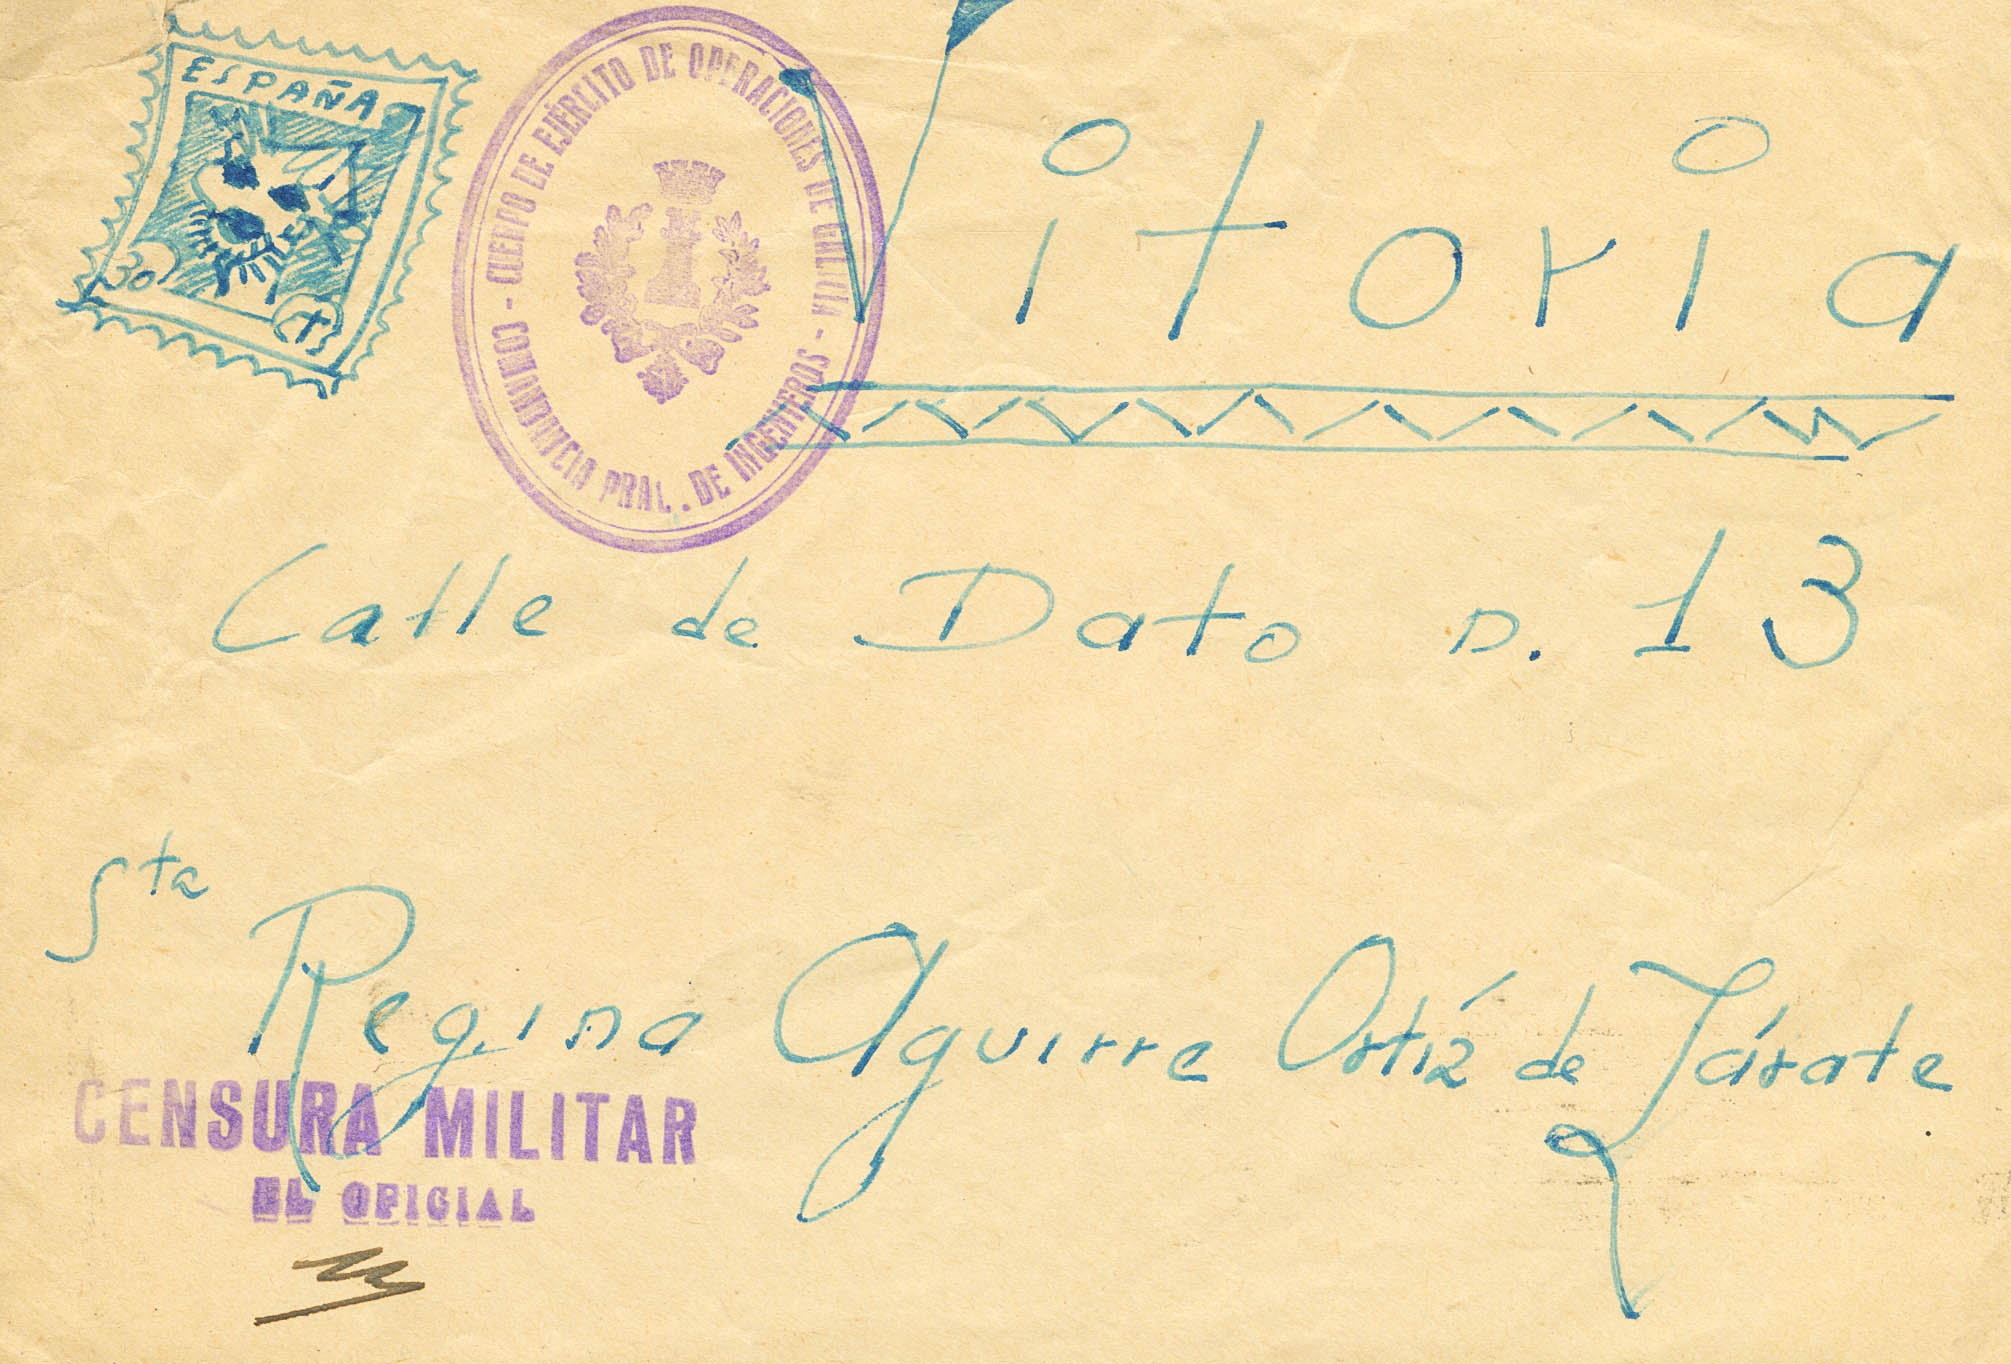 ESPAÑA
30
CUERPO DE EJÉRCITO DE OPERACIONES DE GALICIA - COMANDANCIA PRAL. DE INGENIEROS -
Vitoria
Calle de Dato n. 13
Sta Regina Aguirre Ortíz de Zárate
CENSURA MILITAR
EL OFICIAL